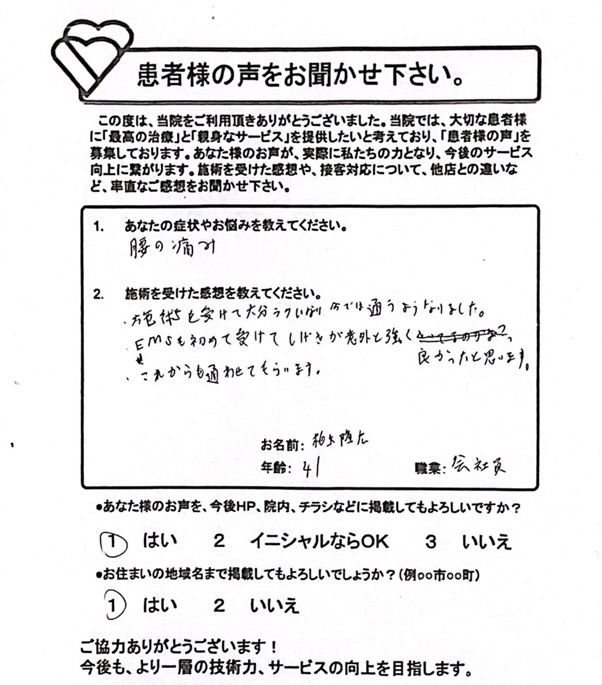 患者様の声をお聞かせ下さい。
この度は、当院をご利用頂きありがとうございました。当院では、大切な患者様
に「最高の治療」と「親身なサービス」を提供したいと考えており、「患者様の声」を
募集しております。あなた様のお声が、実際に私たちの力となり、今後のサービス
向上に繋がります。施術を受けた感想や、接客対応について、他店との違いな
ど、率直なご感想をお聞かせ下さい。
1. あなたの症状やお悩みを教えてください。
腰の痛み
2. 施術を受けた感想を教えてください。
・施術を受けて大分ラクになり 今では通うようなりました。
・EMSも初めて受けて しげきが意外と強く
良かったと思います。
・これからも通わせてもらいます。
お名前:
年齢: 41 職業: 会社員
●あなた様のお声を、今後HP、院内、チラシなどに掲載してもよろしいですか？
1 はい 2 イニシャルならOK 3 いいえ
●お住まいの地域名まで掲載してもよろしいでしょうか？(例○○市○○町)
1 はい 2 いいえ
ご協力ありがとうございます！
今後も、より一層の技術力、サービスの向上を目指します。